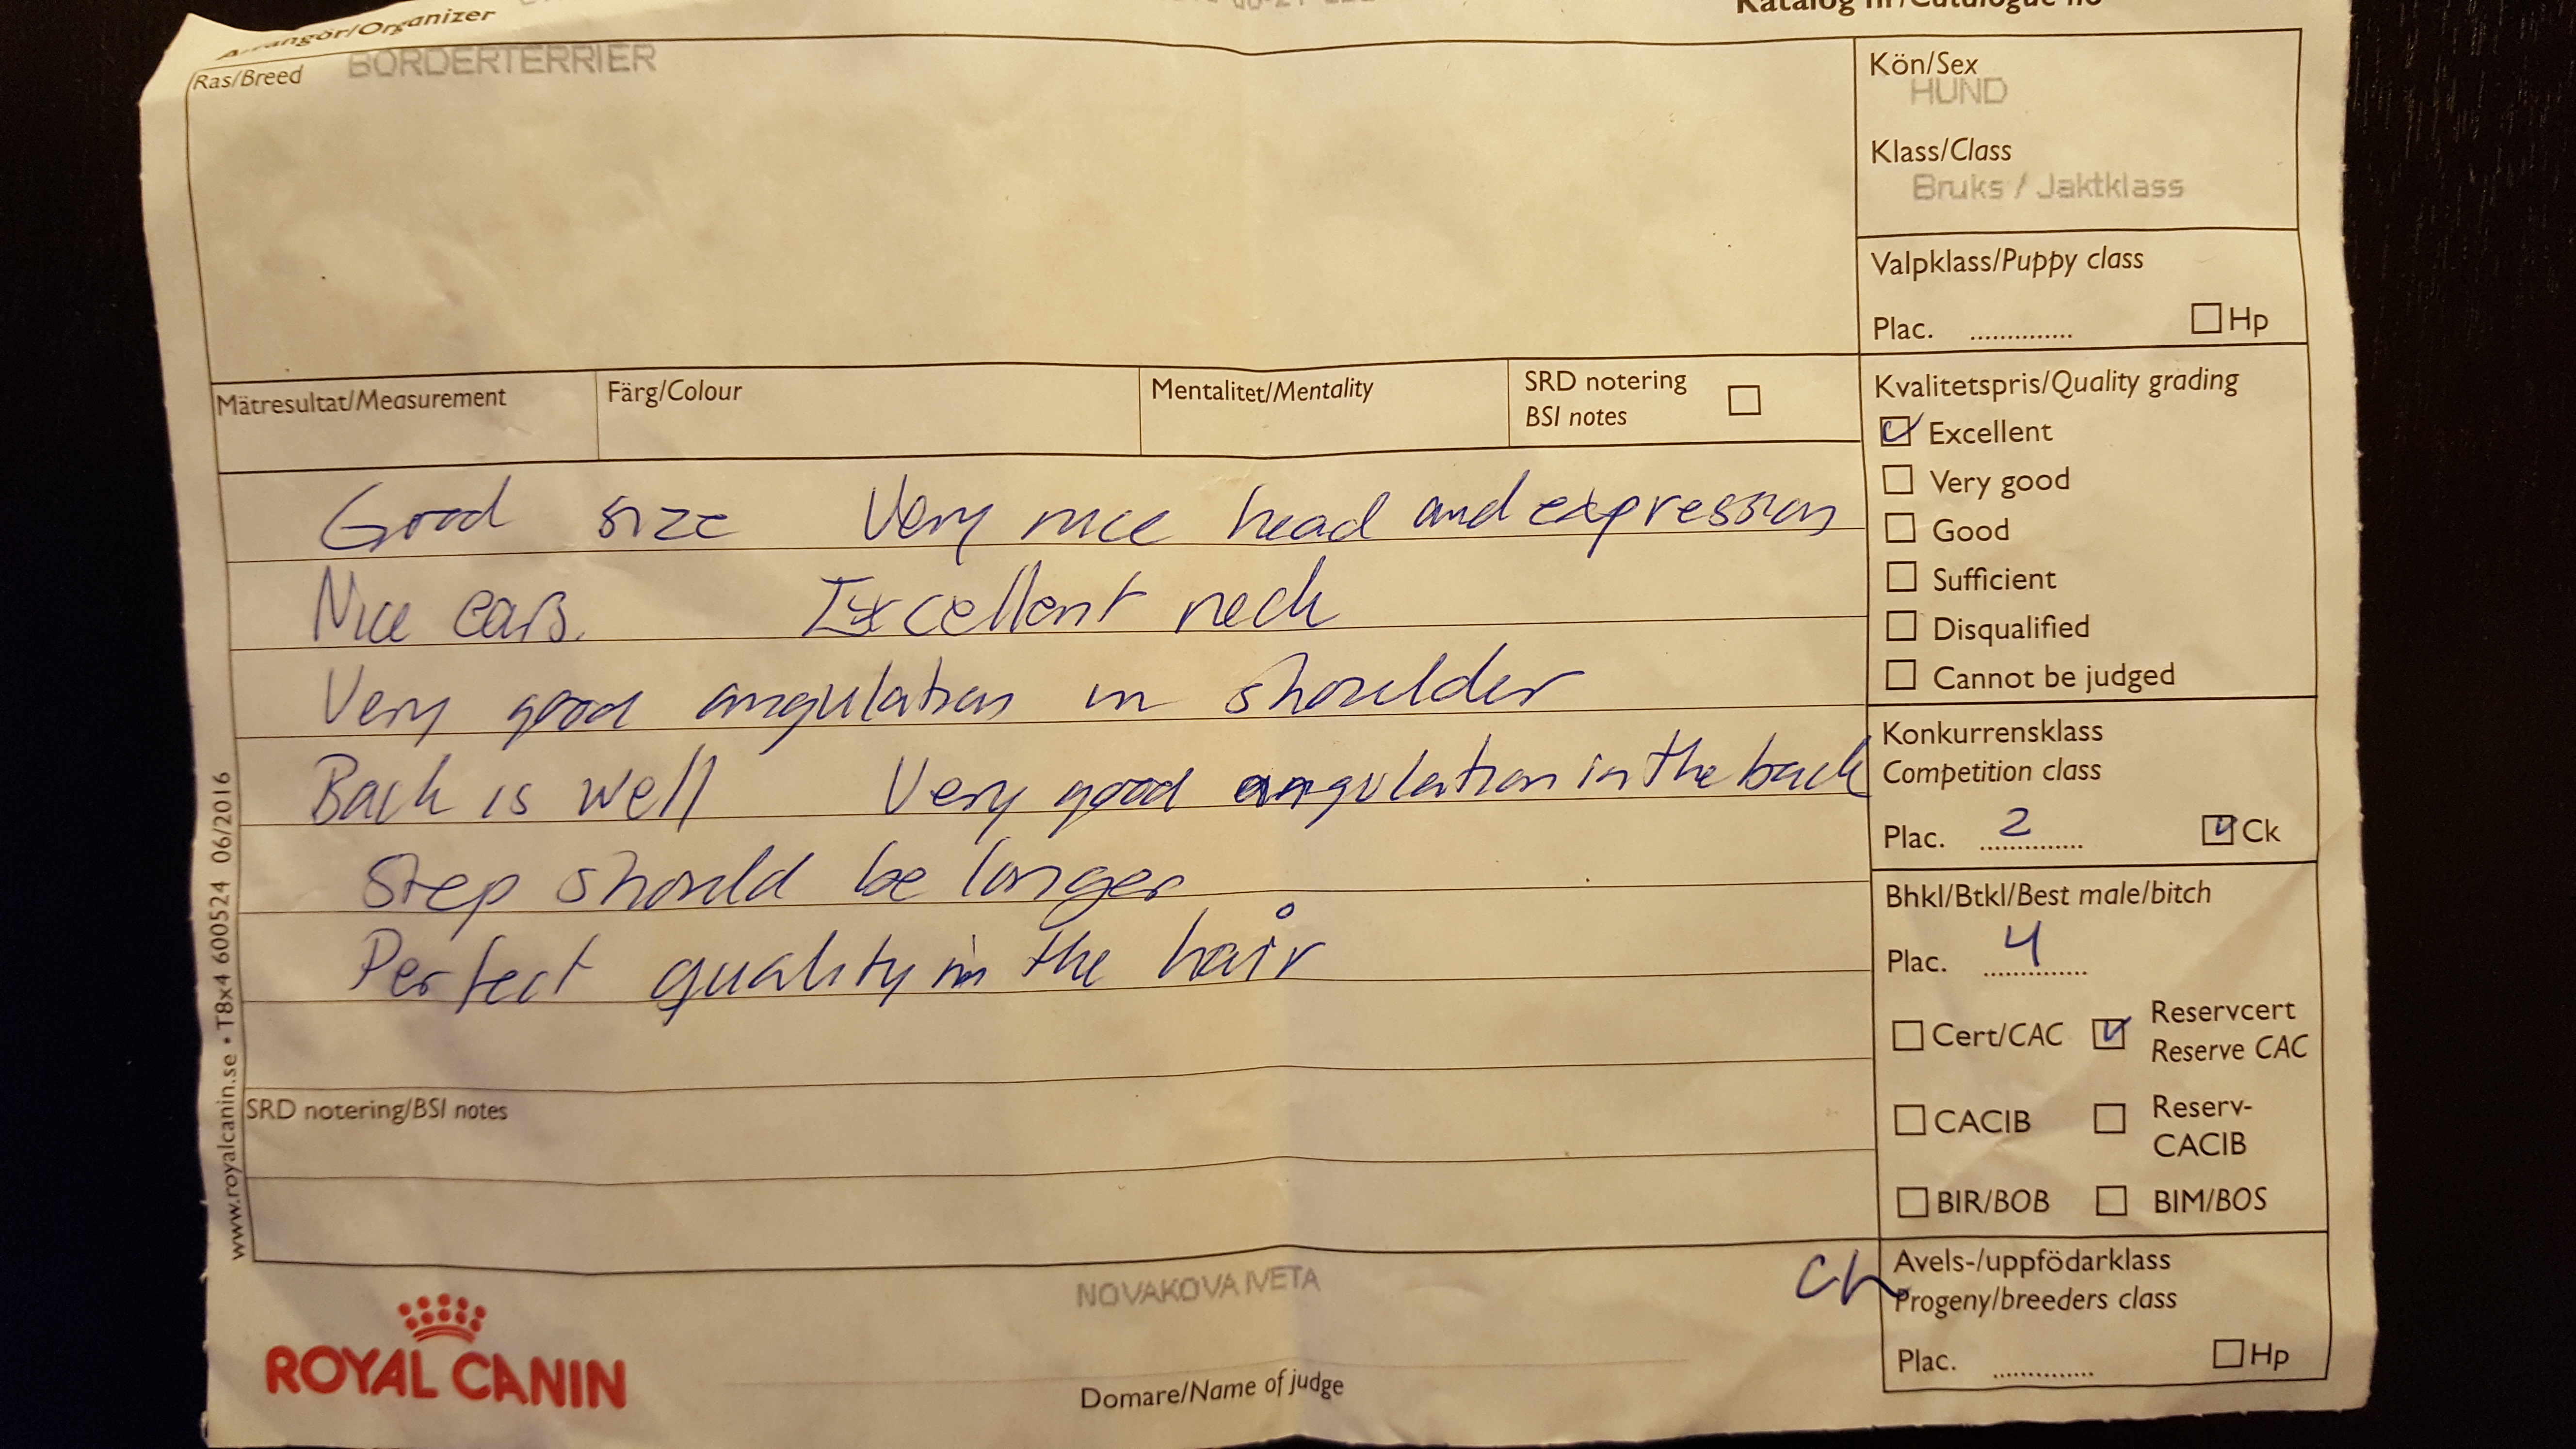 Arrangör/Organizer
Ras/Breed BORDERTERRIER
Kön/Sex
HUND
Klass/Class
Bruks / Jaktklass
Valpklass/Puppy class
Plac. .............. Hp
Mätresultat/Measurement
Färg/Colour
Mentalitet/Mentality
SRD notering
BSI notes
Kvalitetspris/Quality grading
Excellent
Very good
Good
Sufficient
Disqualified
Cannot be judged
Good size Very nice head and expression
Nice ears. Excellent neck
Very good angulation in shoulder
Back is well Very good angulation in the back
Step should be longer
Perfect quality in the hair
Konkurrensklass
Competition class
Plac. 2 Ck
Bhkl/Btkl/Best male/bitch
Plac. 4
Cert/CAC
Reservcert
Reserve CAC
CACIB
Reserv-
CACIB
BIR/BOB
BIM/BOS
SRD notering/BSI notes
www.royalcanin.se • T8x4 600524 06/2016
ROYAL CANIN
NOVAKOVA IVETA
Domare/Name of judge
Avels-/uppfödarklass
Progeny/breeders class
Plac. .............. Hp